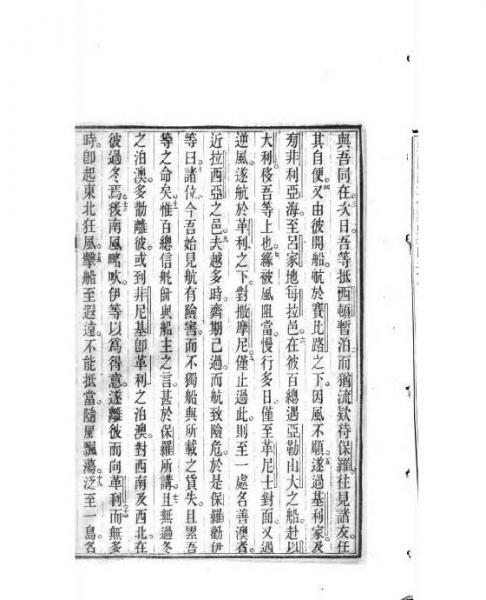 與吾同在次日吾等抵西頓暫泊而猶流欵待保羅往見諸友任
其自便又由彼開船航於賽比路之下因風不順遂過基利家及
旁非利亞海至呂家地每拉邑在彼百總遇亞勒山大之船赴以
大利移吾等上也緣被風阻當慢行多日僅至革尼士對面又遇
逆風遂航於革利之下對撒摩尼僅止過此則至一處名善澳者
近拉西亞之邑夫越多時齊期己過而航致險危於是保羅勸伊
等曰諸位今吾始見航有險害而不獨船與所載之貨失且累吾
等之命矣惟百總信航師與船主之言甚於保羅所講且無過冬
之泊澳多勸離彼或到非尼基卽革利之泊澳對西南及西北在
彼過冬焉後南風略吹伊等以為得意遂離彼而向革利而無多
時卽起東北狂風擊船至遐遠不能抵當隨風飄蕩泛至一島名